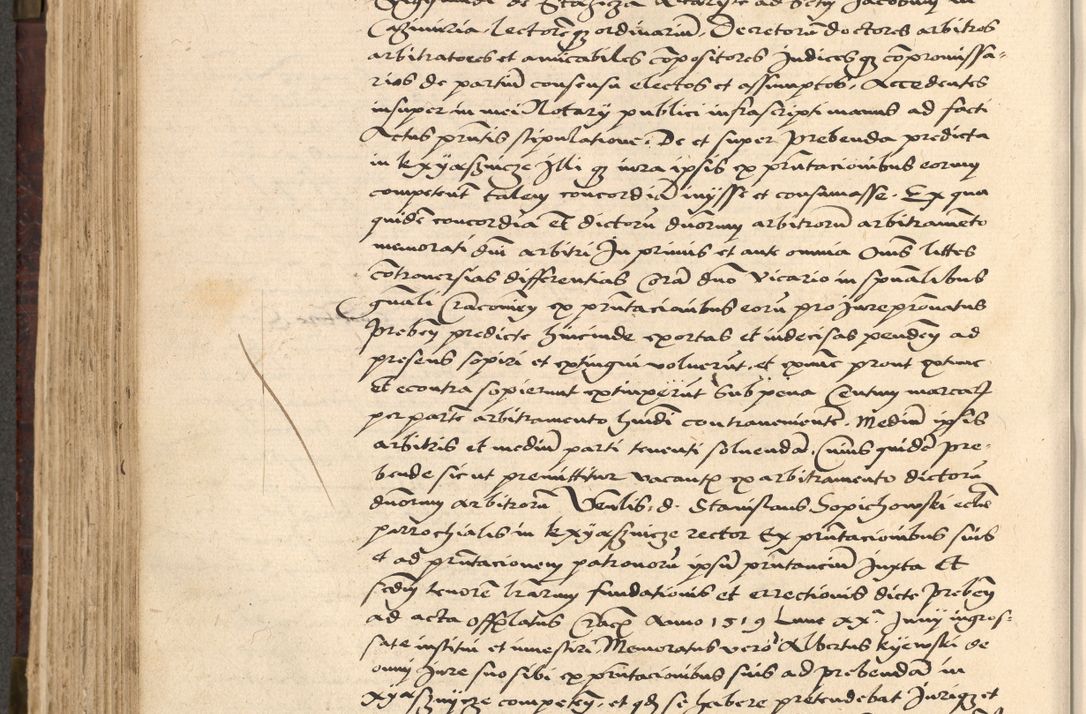 Cazimiria, lectorem qz ordinarium, Decretorum doctores arbitros
arbitratores et amicabiles compositores Judices qz compromissa-
rios de partium consensu electos et assumptos, Accedentes
insuper in mei Notarii publici infrascripti manus ad facti
Actus pntis stipulatione. De et super Prebenda predicta
in kxyasznicze Illi qz iura ipsis ex pntacionibus eorum
competent talem concordiam inysse et consumasse. Ex qua
quidem concordia et dictorum duorum arbitrorum arbitramento
memorati dni arbitri In primis et ante omnia Omnes littes
controversias differentias Coram dno Vicario in spualibus
gnali Cracoviensi ex pntacionibus eorum pro Jure pronatus
Preben predicte hincinde exortas et indecisas penden ad
presens sopiri et extingui voluerunt, et exnunc prout extunc
et econtra sopierunt extinxerunt Sub pena Centum marcarum
per partem arbitramento hmodi contravenientem. Medium ipsis
arbitris et medium parti tenenti soluendam. Cuius quidem pre-
bende sicut premittitur vacantem ex arbitramento dictorum
duorum arbitrorum Venlis. d. Stanislaus Sopichowski ecclie
parrochialis in kxyasznicze rector Ex pntacionibus suis
et ad pntacionem patronorum ipsum pntancium Juxta et
scdm tenorem lrarum fundationis et errectionis dicte Preben
ad acta Offlatus Crac Anno 1519 Lune XXa Junii ingros-
sate institui et investiri Memoratus vero Albertus kyewski de
omni Jure suo sibi ex pntacionibus suis ad prebendam in
xyasznycze competen, et qd se habere pretendebat Jurique et